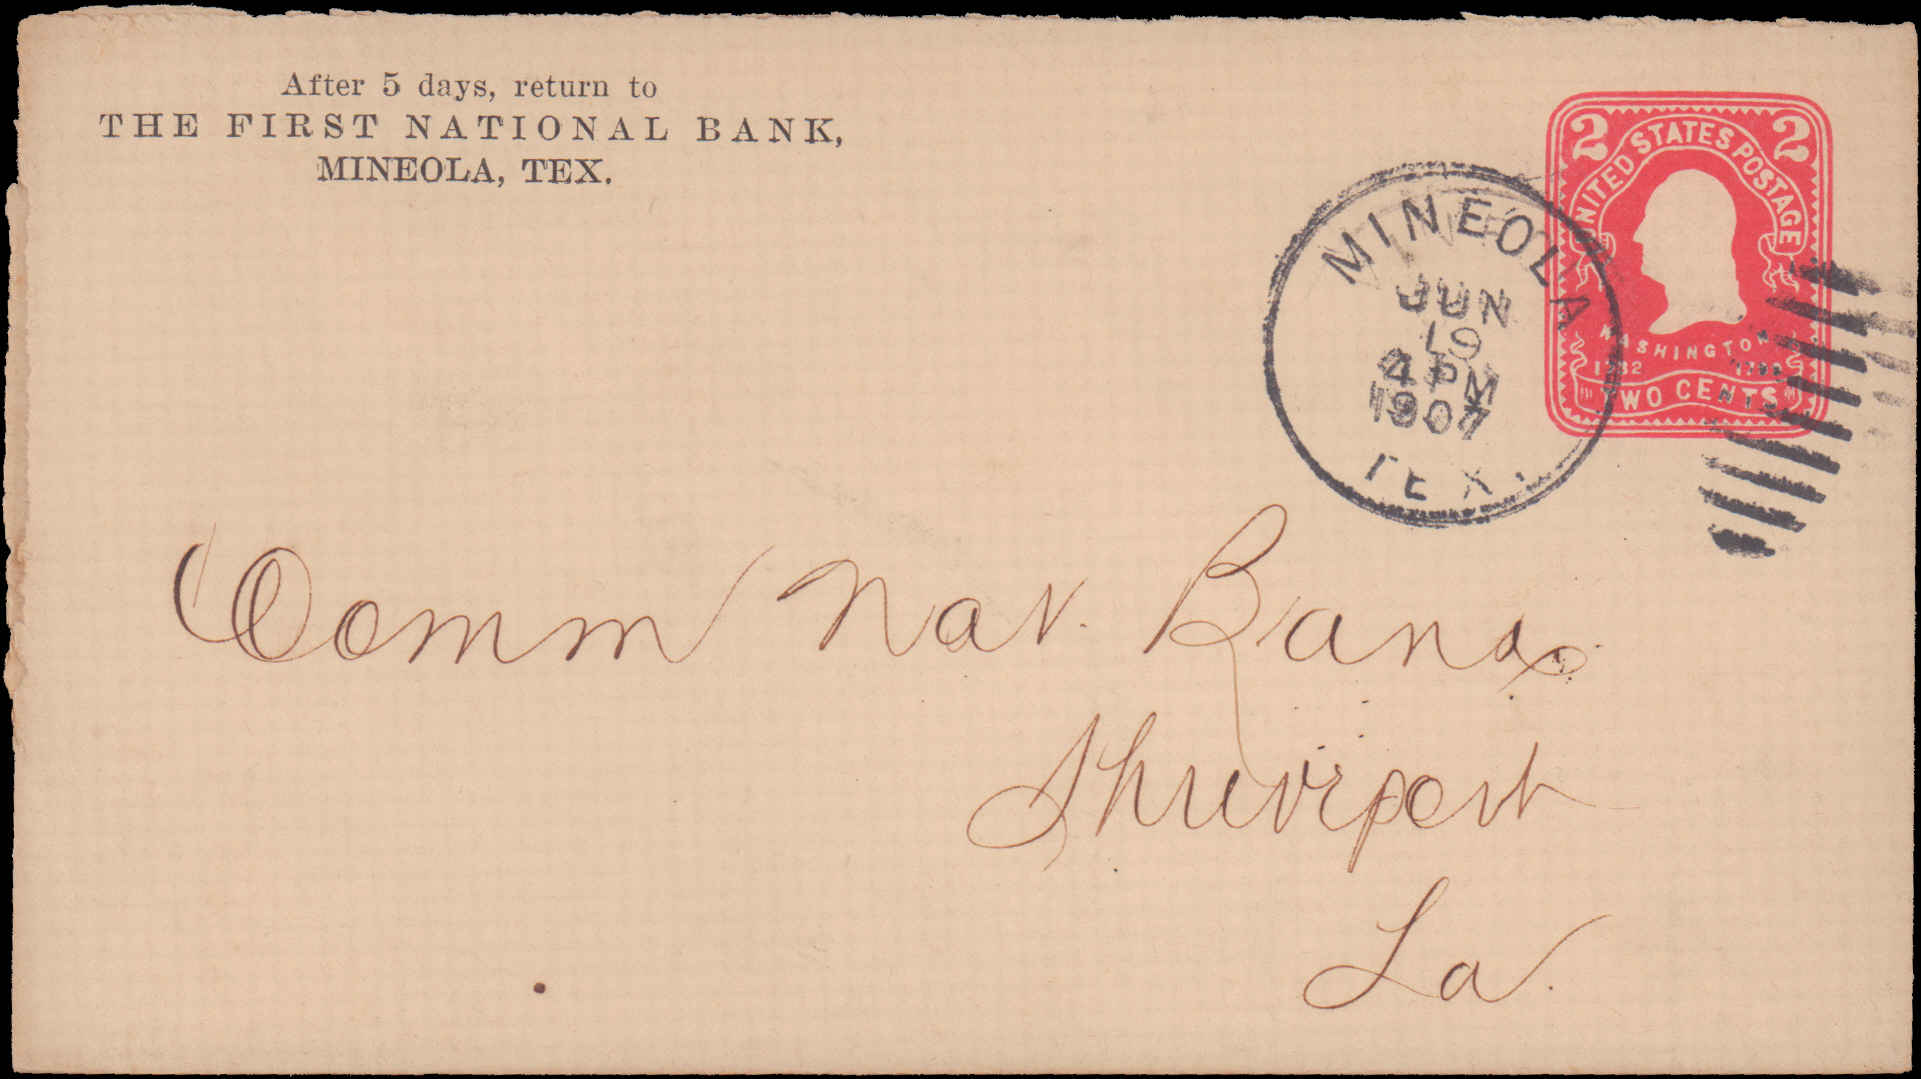 After 5 days, return to
THE FIRST NATIONAL BANK,
MINEOLA, TEX.
2 2
UNITED STATES POSTAGE
WASHINGTON
1732 1799
TWO CENTS
MINEOLA
JUN
19
4 PM
1907
TEX.
Comm Nat. Bank
Shreveport
La.